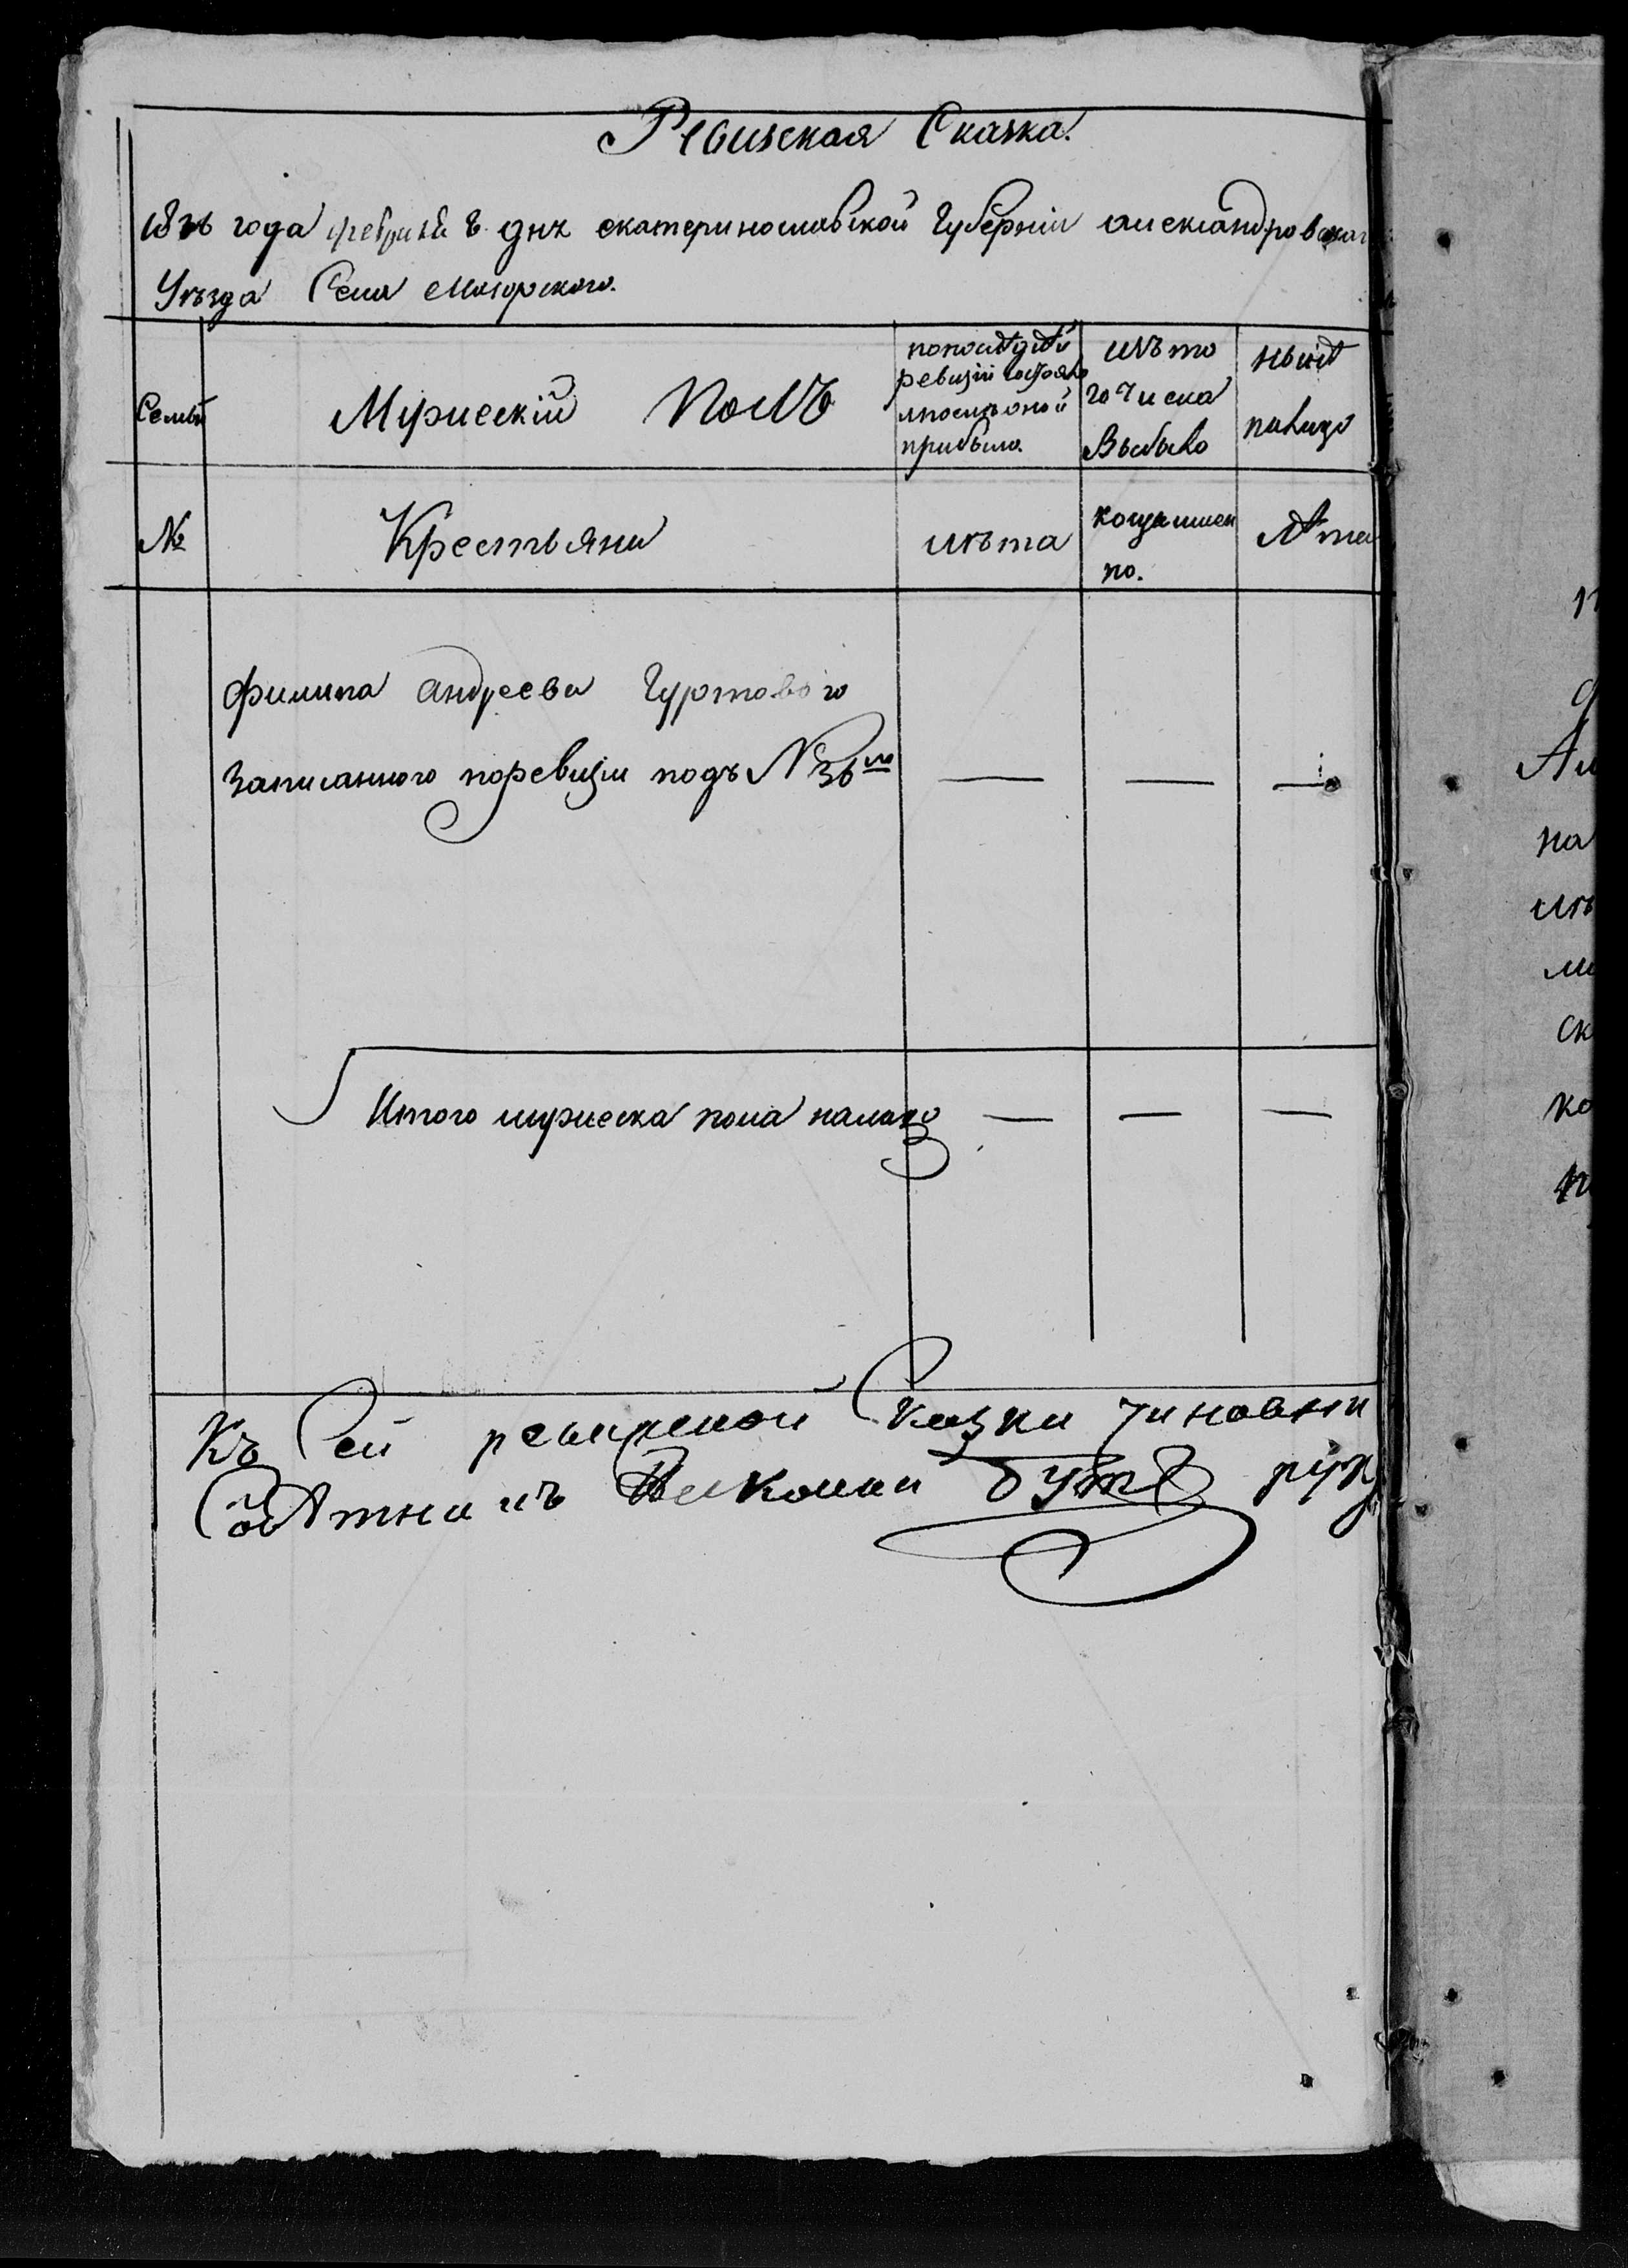 Ревизская Сказка.
1816 года февраля 8 дня екатеринославской Губерніи александровскаг
Уѣзда Села Маіорского.
Семьи
Мужескій Полъ
попослѣдней ревизіи состояло ипослѣ оной прибыло.
изъ того Числа Выбыло
нынѣ налицо
№
Крестьяни
лѣта
когда имен но.
Лѣта
филипа андреева Гуртового
записанного поревизіи подъ № 36м
Итого мужеска пола налицо
Къ Сей ревизской Сказки
рук